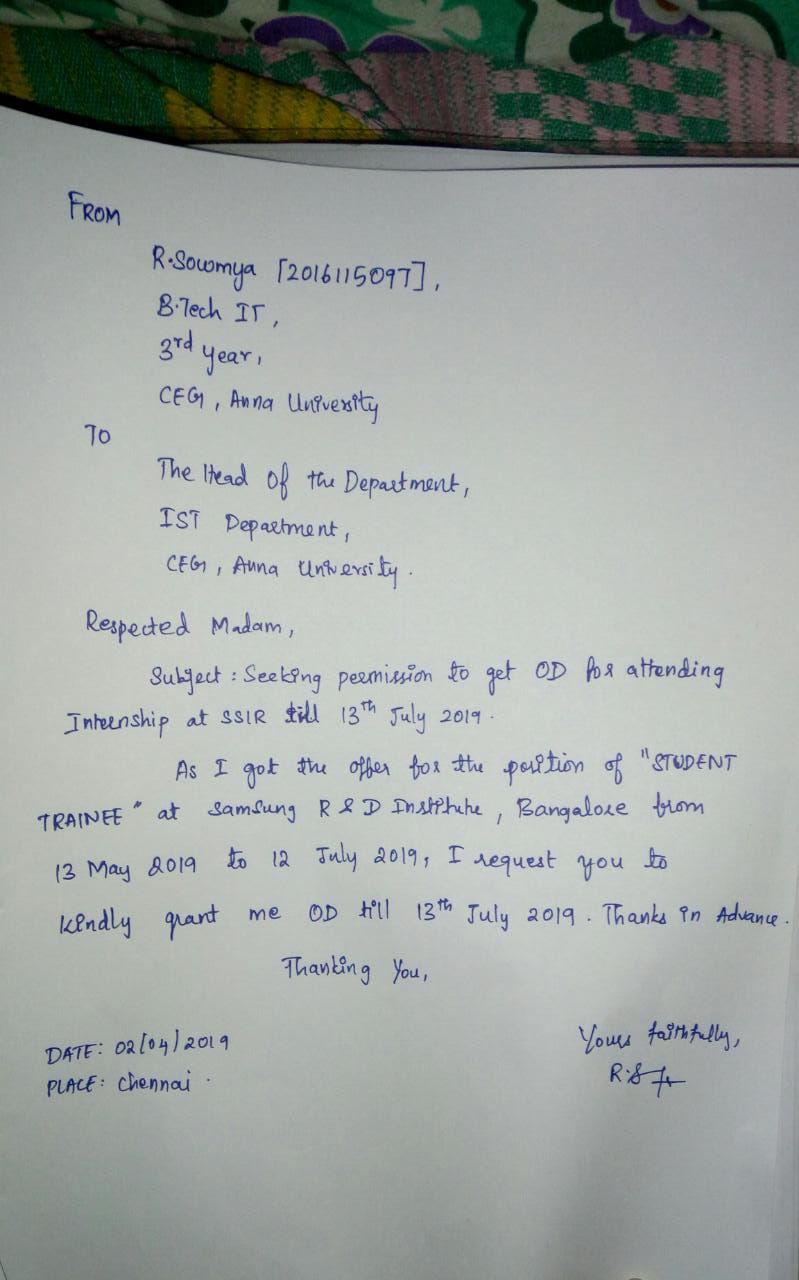 FROM
R.Sowmya [2016115097],
B.Tech IT,
3rd year,
CEG, Anna University
TO
The Head of the Department,
IST Department,
CEG, Anna University.
Respected Madam,
Subject : Seeking permission to get OD for attending
Internship at SSIR till 13th July 2019.
As I got the offer for the position of "STUDENT
TRAINEE" at Samsung R & D Institute, Bangalore from
13 May 2019 to 12 July 2019, I request you to
kindly grant me OD till 13th July 2019. Thanks in Advance.
Thanking You,
DATE: 02/04/2019
Yours faithfully,
PLACE: Chennai.